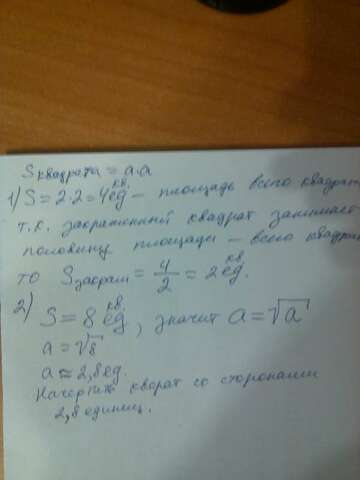 S квадрата = a·a
1) S = 2·2 = 4 ед кв. – площадь всего квадрата
т.к. закрашенный квадрат занимает
половину площади – всего квадрата
то S закраш = 4/2 = 2 ед кв.
2) S = 8 ед кв., значит a = √a
a = √8
a ≈ 2,8 ед.
Начертите кварат со сторонами
2,8 единиц.